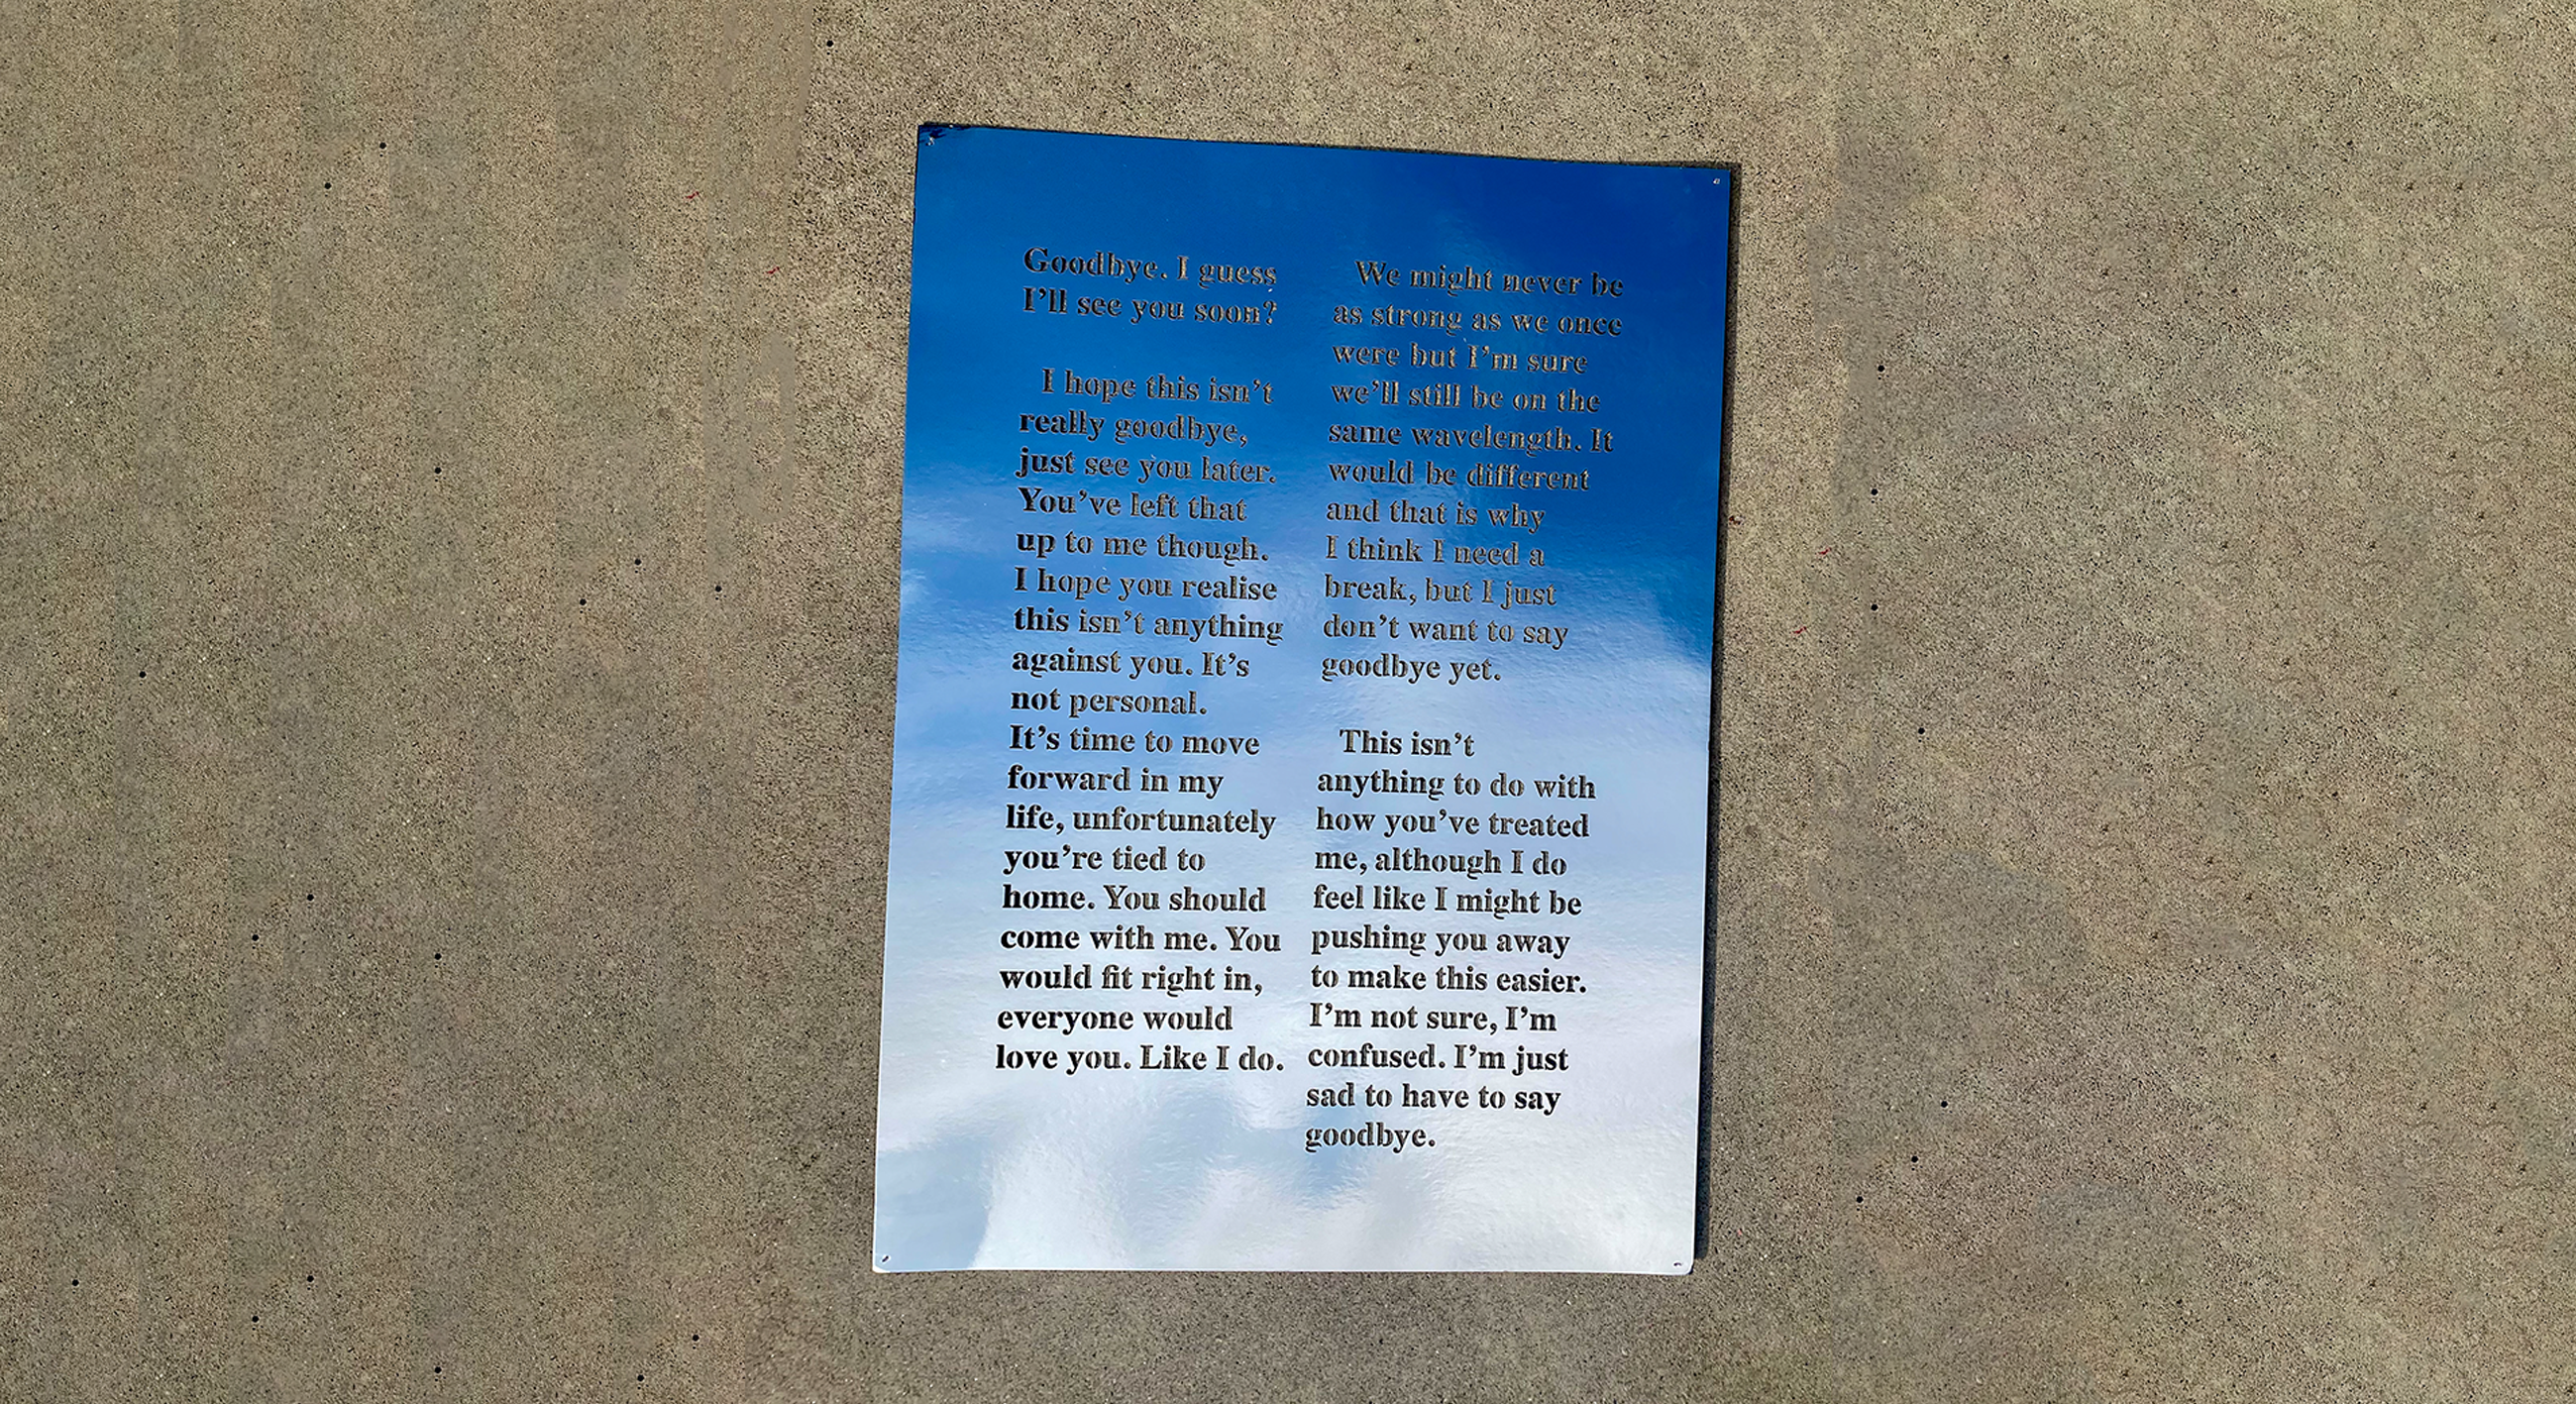 Goodbye. I guess
I'll see you soon?
I hope this isn't
really goodbye,
just see you later.
You've left that
up to me though.
I hope you realise
this isn't anything
against you. It's
not personal.
It's time to move
forward in my
life, unfortunately
you're tied to
home. You should
come with me. You
would fit right in,
everyone would
love you. Like I do.
We might never be
as strong as we once
were but I'm sure
we'll still be on the
same wavelength. It
would be different
and that is why
I think I need a
break, but I just
don't want to say
goodbye yet.
This isn't
anything to do with
how you've treated
me, although I do
feel like I might be
pushing you away
to make this easier.
I'm not sure, I'm
confused. I'm just
sad to have to say
goodbye.